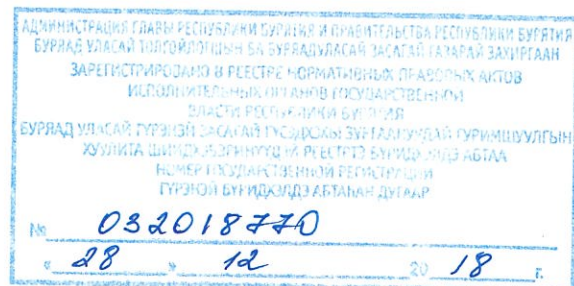 АДМИНИСТРАЦИЯ ГЛАВЫ РЕСПУБЛИКИ БУРЯТИЯ И ПРАВИТЕЛЬСТВА РЕСПУБЛИКИ БУРЯТИЯ
БУРЯАД УЛАСАЙ ТОЛГОЙЛОГШЫН БА БУРЯАД УЛАСАЙ ЗАСАГАЙ ГАЗАРАЙ ЗАХИРГААН
ЗАРЕГИСТРИРОВАНО В РЕЕСТРЕ НОРМАТИВНЫХ ПРАВОВЫХ АКТОВ
ИСПОЛНИТЕЛЬНЫХ ОРГАНОВ ГОСУДАРСТВЕННОЙ
ВЛАСТИ РЕСПУБЛИКИ БУРЯТИЯ
БУРЯАД УЛАСАЙ ГҮРЭНЭЙ ЗАСАГАЙ
РЕЕСТРТЭ АБТАА
НОМЕР ГОСУДАРСТВЕННОЙ РЕГИСТРАЦИИ
ГҮРЭНЭЙ БҮРИДХЭЛДЭ АБТАҺАН ДУГААР
№ 032018770
« 28 » 12 20 18 г.